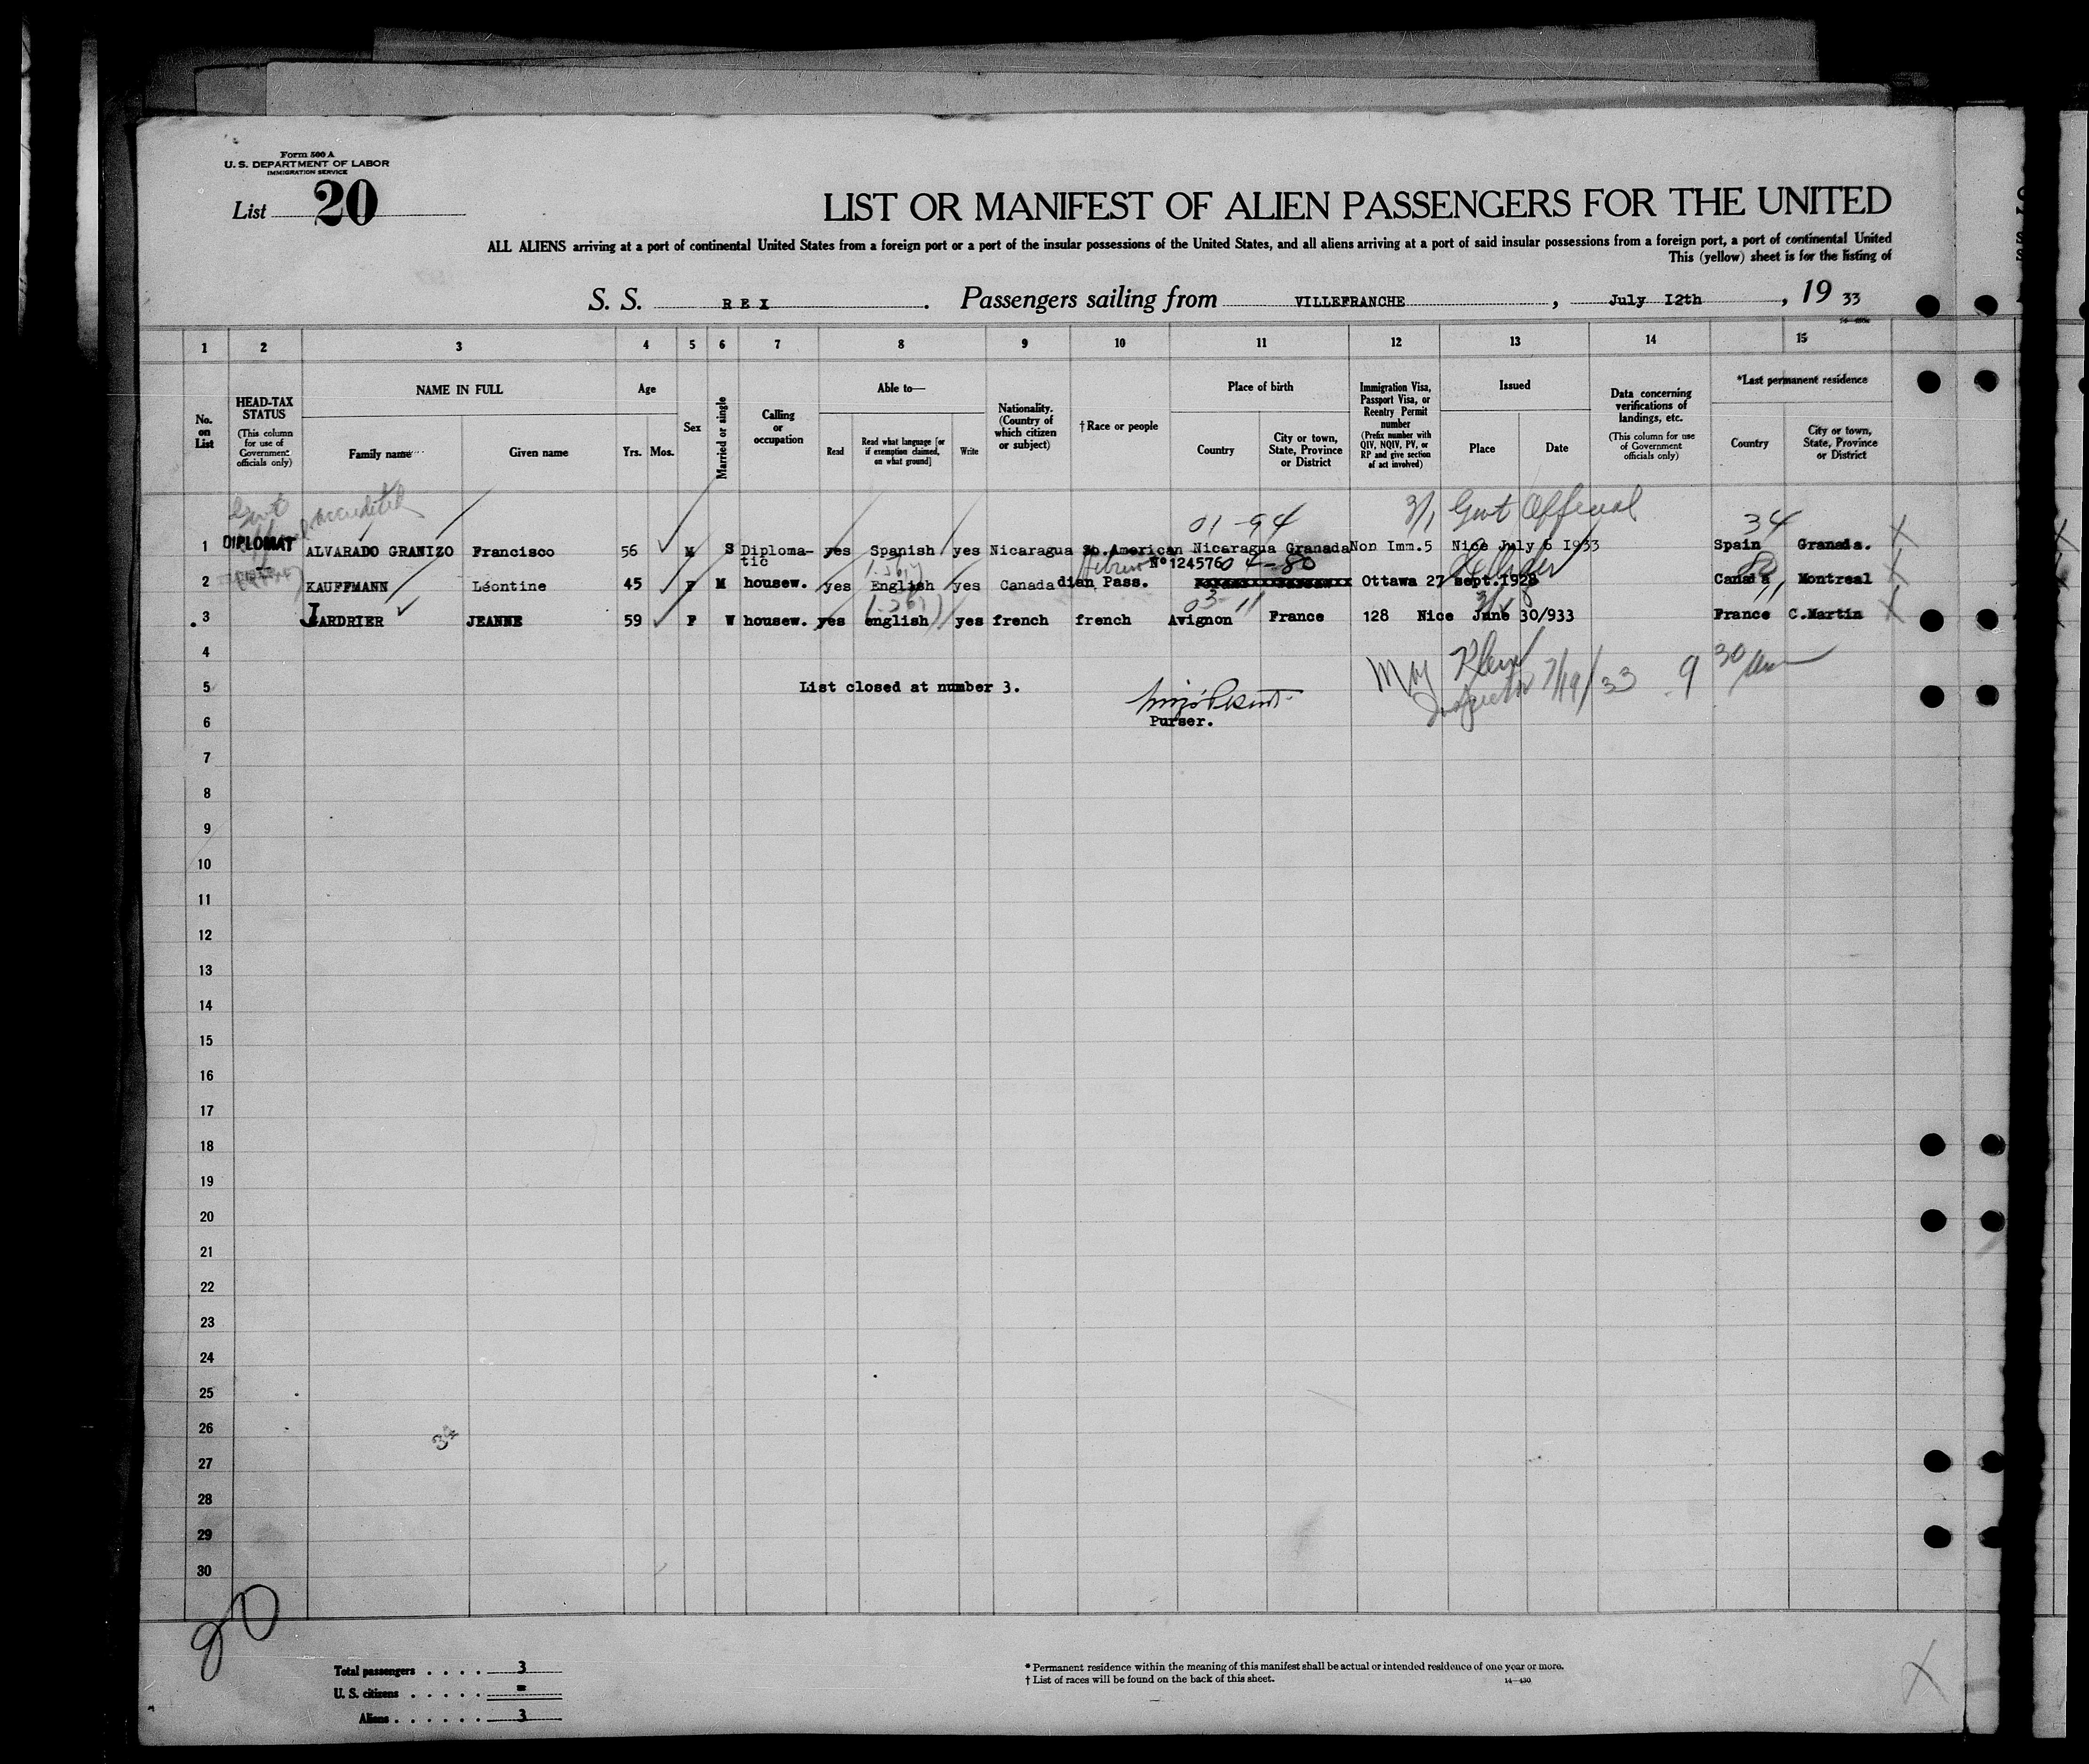 Form 500 A
U. S. DEPARTMENT OF LABOR
IMMIGRATION SERVICE
List 20
LIST OR MANIFEST OF ALIEN PASSENGERS FOR THE UNITED
ALL ALIENS arriving at a port of continental United States from a foreign port or a port of the insular possessions of the United States, and all aliens arriving at a port of said insular possessions from a foreign port, a port of continental United
This (yellow) sheet is for the listing of
S. S. REX. Passengers sailing from VILLEFRANCHE, July I2th, 19 33
1 2 3 4 5 6 7 8 9 10 11 12 13 14 15
No. on List
HEAD-TAX STATUS (This column for use of Government officials only)
NAME IN FULL
Family name
Given name
Age
Yrs. Mos.
Sex
Married or single
Calling or occupation
Able to—
Read
Read what language [or if exemption claimed, on what ground]
Write
Nationality. (Country of which citizen or subject)
†Race or people
Place of birth
Country
City or town, State, Province or District
Immigration Visa, Passport Visa, or Reentry Permit number (Prefix number with QIV, NQIV, PV, or RP and give section of act involved)
Issued
Place
Date
Data concerning verifications of landings, etc. (This column for use of Government officials only)
*Last permanent residence
Country
City or town, State, Province or District
Govt accredited 01-94 3/1 Govt Official 34
1 DIPLOMAT ALVARADO GRANIZO Francisco 56 M S Diploma-tic yes Spanish yes Nicaragua So.American Nicaragua Granada Non Imm.5 Nice July 6 I933 Spain Granada.
Hebrew Nº124576 04-80
2 KAUFFMANN Léontine 45 F M housew. yes English yes Canadadian Pass. Ottawa 27 sept.1928 Canada Montreal
03-11 11
3 JARDRIER JEANNE 59 F W housew. yes english yes french french Avignon France 128 Nice June 30/933 France C.Martin
4
5 List closed at number 3.
Inspector 7/19/33 9 30 am
6 Purser.
7
8
9
10
11
12
13
14
15
16
17
18
19
20
21
22
23
24
25
26
27
28
29
30
Total passengers . . . . 3
U. S. citizens . . . . . =
Aliens . . . . . . 3
* Permanent residence within the meaning of this manifest shall be actual or intended residence of one year or more.
† List of races will be found on the back of this sheet.
14—430